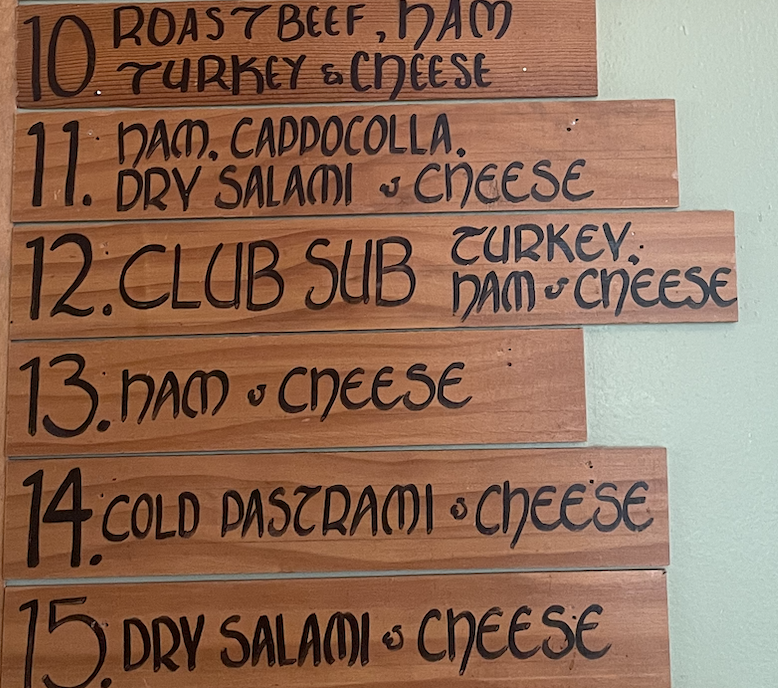 10 ROAST BEEF, HAM
TURKEY & CHEESE
11. HAM, CAPPOCOLLA,
DRY SALAMI & CHEESE
12. CLUB SUB TURKEY,
HAM & CHEESE
13. HAM & CHEESE
14. COLD PASTRAMI & CHEESE
15. DRY SALAMI & CHEESE